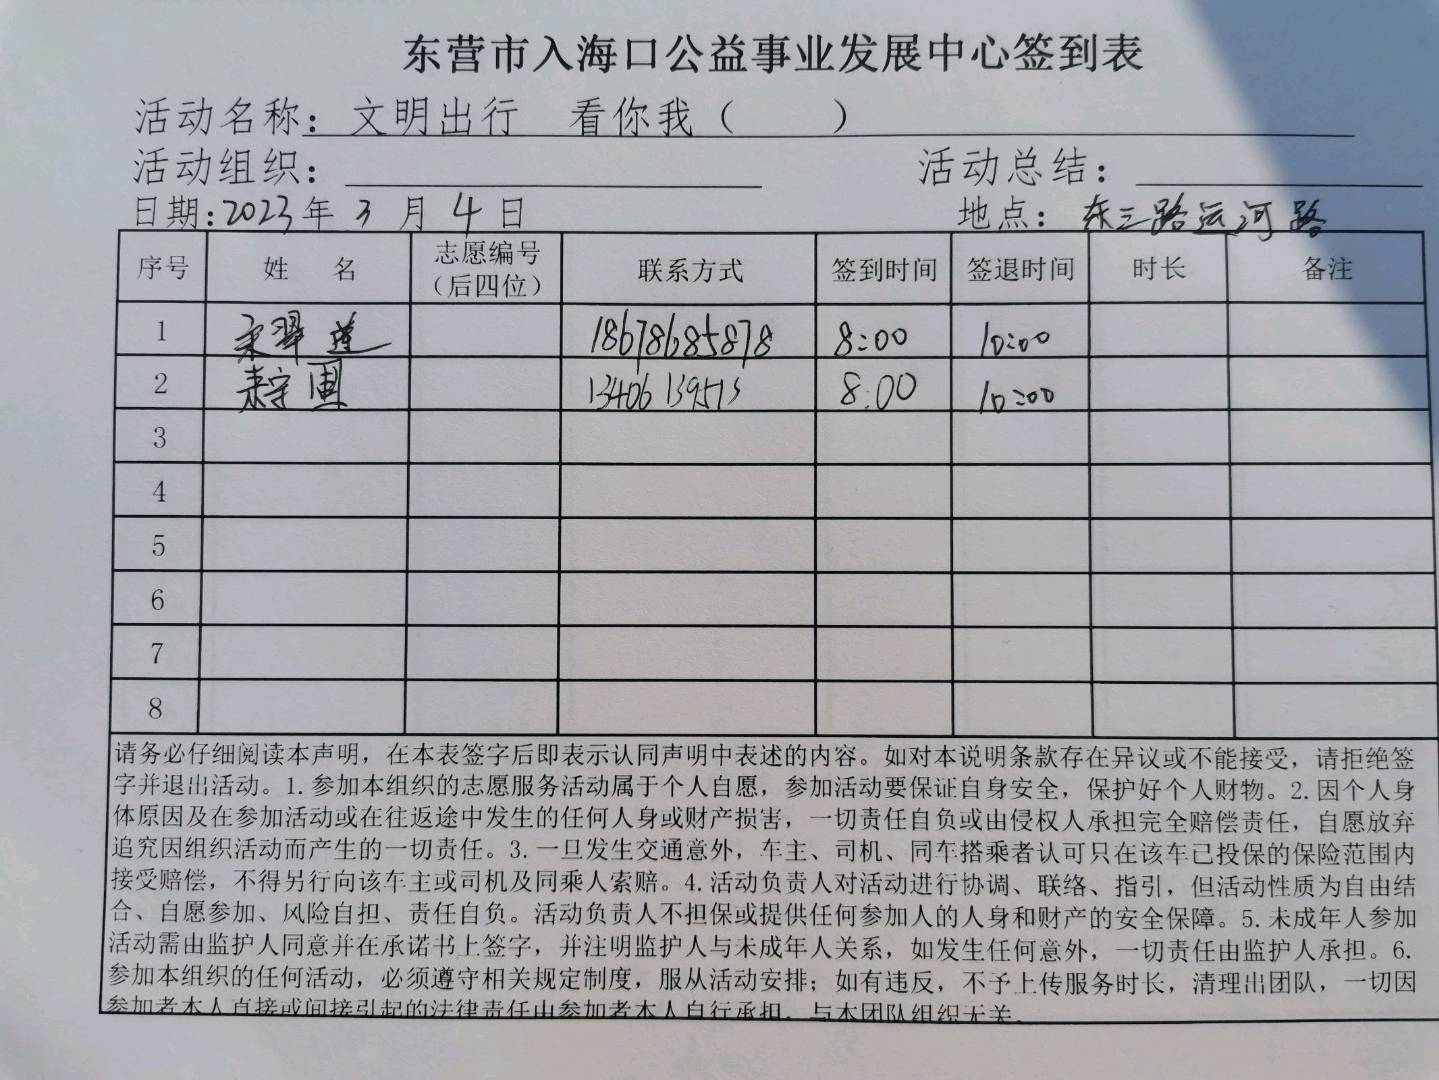 东营市入海口公益事业发展中心签到表
活动名称：文明出行 看你我（ ）
活动组织： 活动总结：
日期:2023年 3 月 4 日 地点：东三路运河路
序号 姓 名 志愿编号（后四位） 联系方式 签到时间 签退时间 时长 备注
1 18678685878 8:00 10:00
2 13406139513 8:00 10:00
3
4
5
6
7
8
请务必仔细阅读本声明，在本表签字后即表示认同声明中表述的内容。如对本说明条款存在异议或不能接受，请拒绝签
字并退出活动。1.参加本组织的志愿服务活动属于个人自愿，参加活动要保证自身安全，保护好个人财物。2.因个人身
体原因及在参加活动或在往返途中发生的任何人身或财产损害，一切责任自负或由侵权人承担完全赔偿责任，自愿放弃
追究因组织活动而产生的一切责任。3.一旦发生交通意外，车主、司机、同车搭乘者认可只在该车已投保的保险范围内
接受赔偿，不得另行向该车主或司机及同乘人索赔。4.活动负责人对活动进行协调、联络、指引，但活动性质为自由结
合、自愿参加、风险自担、责任自负。活动负责人不担保或提供任何参加人的人身和财产的安全保障。5.未成年人参加
活动需由监护人同意并在承诺书上签字，并注明监护人与未成年人关系，如发生任何意外，一切责任由监护人承担。6.
参加本组织的任何活动，必须遵守相关规定制度，服从活动安排；如有违反，不予上传服务时长，清理出团队，一切因
参加者本人直接或间接引起的法律责任由参加者本人自行承担，与本团队组织无关。